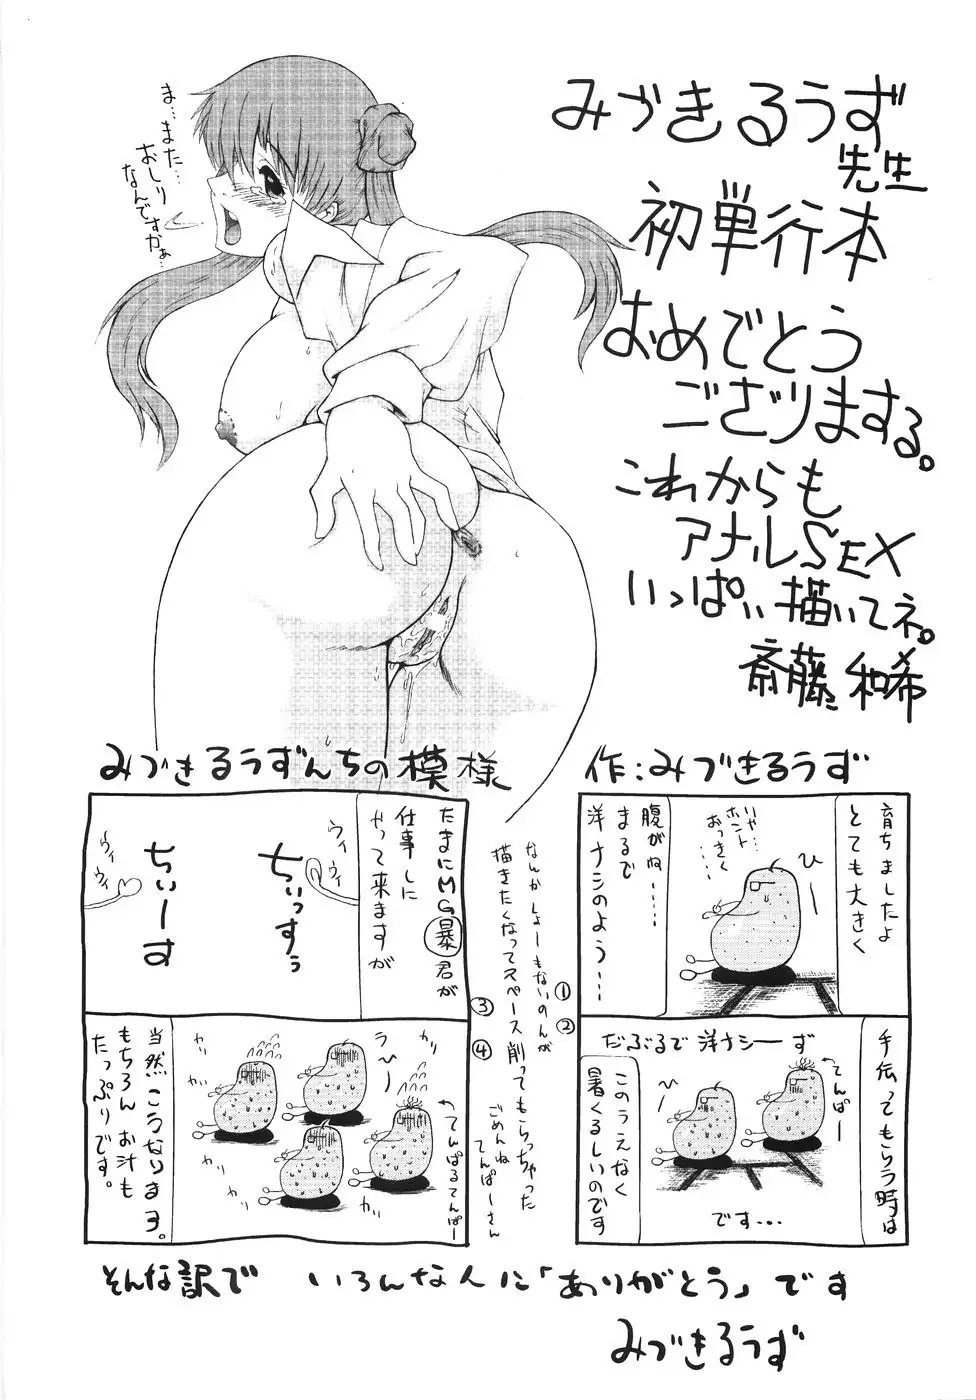 みづきるうず
先生
初単行本
おめでとう
ござりまする。
これからも
アナルSEX
いっぱい描いてネ。
斎藤和希
ま…また…
おしり
なんですかぁ…
作:みづきるうず
育ちましたよ
とても大きく
いや…
ホント
おっきく
……
ひー
腹がね……
まるで
洋ナシのよう…
手伝ってもらう時は
だぶるで洋ナシーず
てんぱー
ひー
このうえなく
暑くるしいのです
です…
なんかしょーもないのんが
描きたくなってスペース削ってもらっちゃった
ごめんね
てんぱーさん
①
②
③
④
みづきるうずんちの模様
たまにMG暴君が
仕事しに
やって来ますが
ウィ
ウィ
ちぃっすぅ
ウィ
ウィ
ちぃーす
うひー
てんぱるてんぱー
カリ
カリ
カリ
カリ
カリ
当然こうなります。
もちろんお汁も
たっぷりです。
そんな訳で いろんな人に「ありがとう」です
みづきるうず